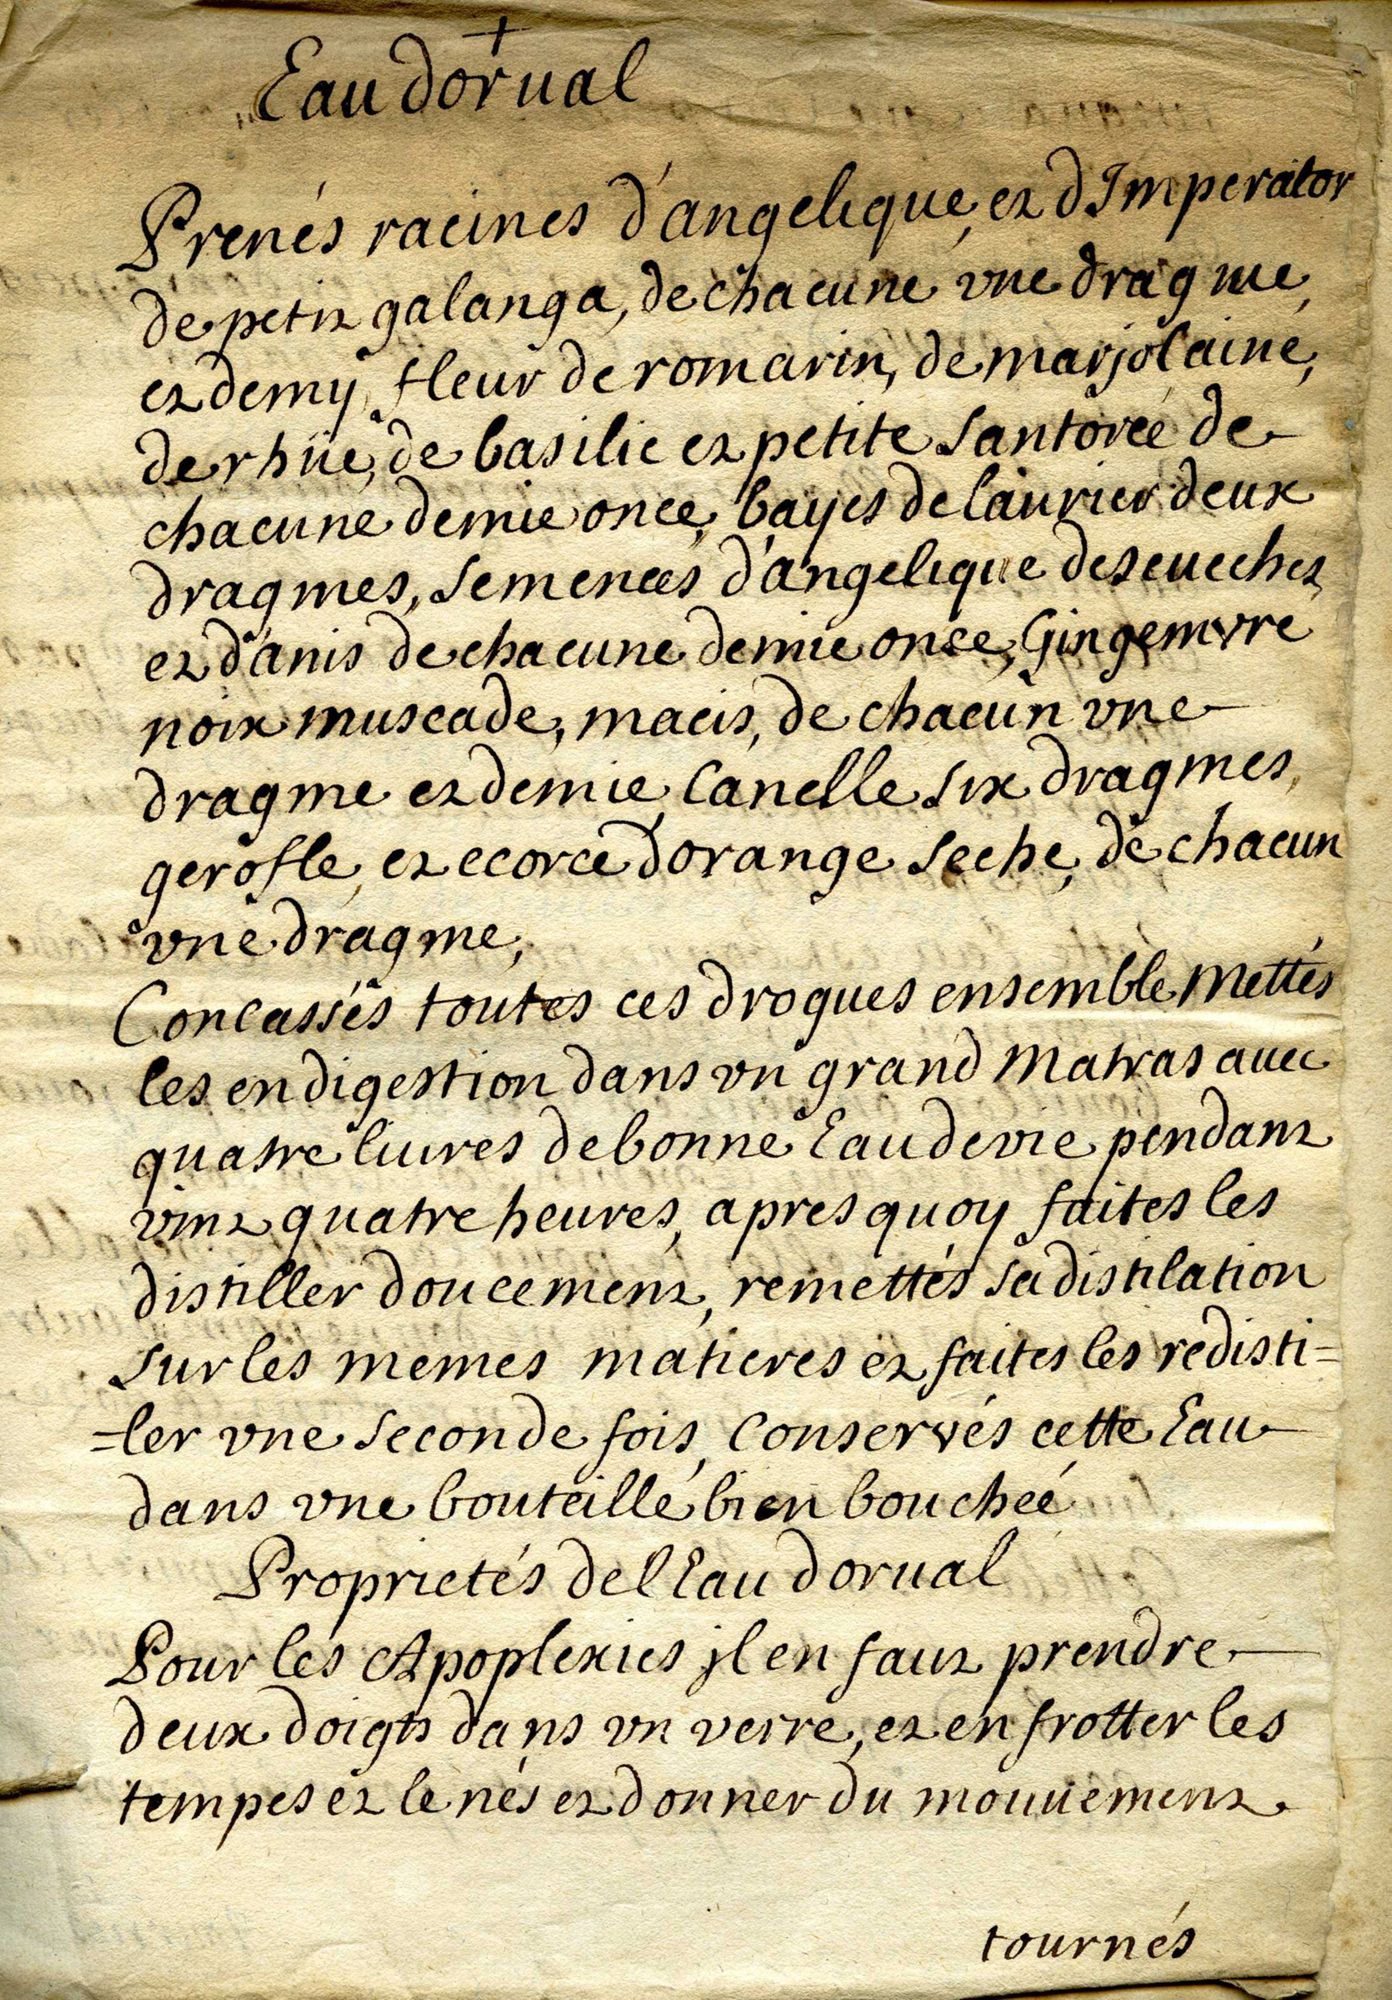 Eau dorual
Prenés racines d'angelique, et d'Imperator
de petit galanga, de chacune vne dragme,
et demy, fleur de romarin, de marjolaine,
de rhüe, de basilic et petite santorée de
chacune demie once, bayes de laurier deux
dragmes, semences d'angelique deseueches
et d'anis de chacune demie once, Gingemvre
noix muscade, macis, de chacun vne
dragme et demie, Canelle six dragmes,
gerofle, et ecorce dorange seche, de chacun
vne dragme,
Concassés toutes ces drogues ensemble, Mettés
les en digestion dans vn grand Matras auec
quatre liures de bonne Eau de vie pendant
vint quatre heures, apres quoy faites les
distiller doucement, remettés sa distilation
sur les memes matieres et faites les redisti=
=ler vne seconde fois, Conservés cette Eau
dans vne bouteille bien bouchée
Proprietés de l'Eau dorual
Pour les Apoplexies jl en faut prendre
deux doigts dans vn verre, et en frotter les
tempes et le nés et donner du mouuement
tournés